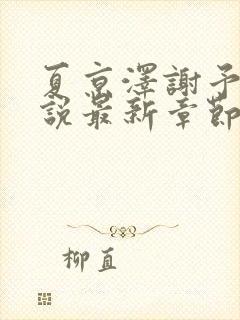 夏京澤謝予
說最新章節
柳直